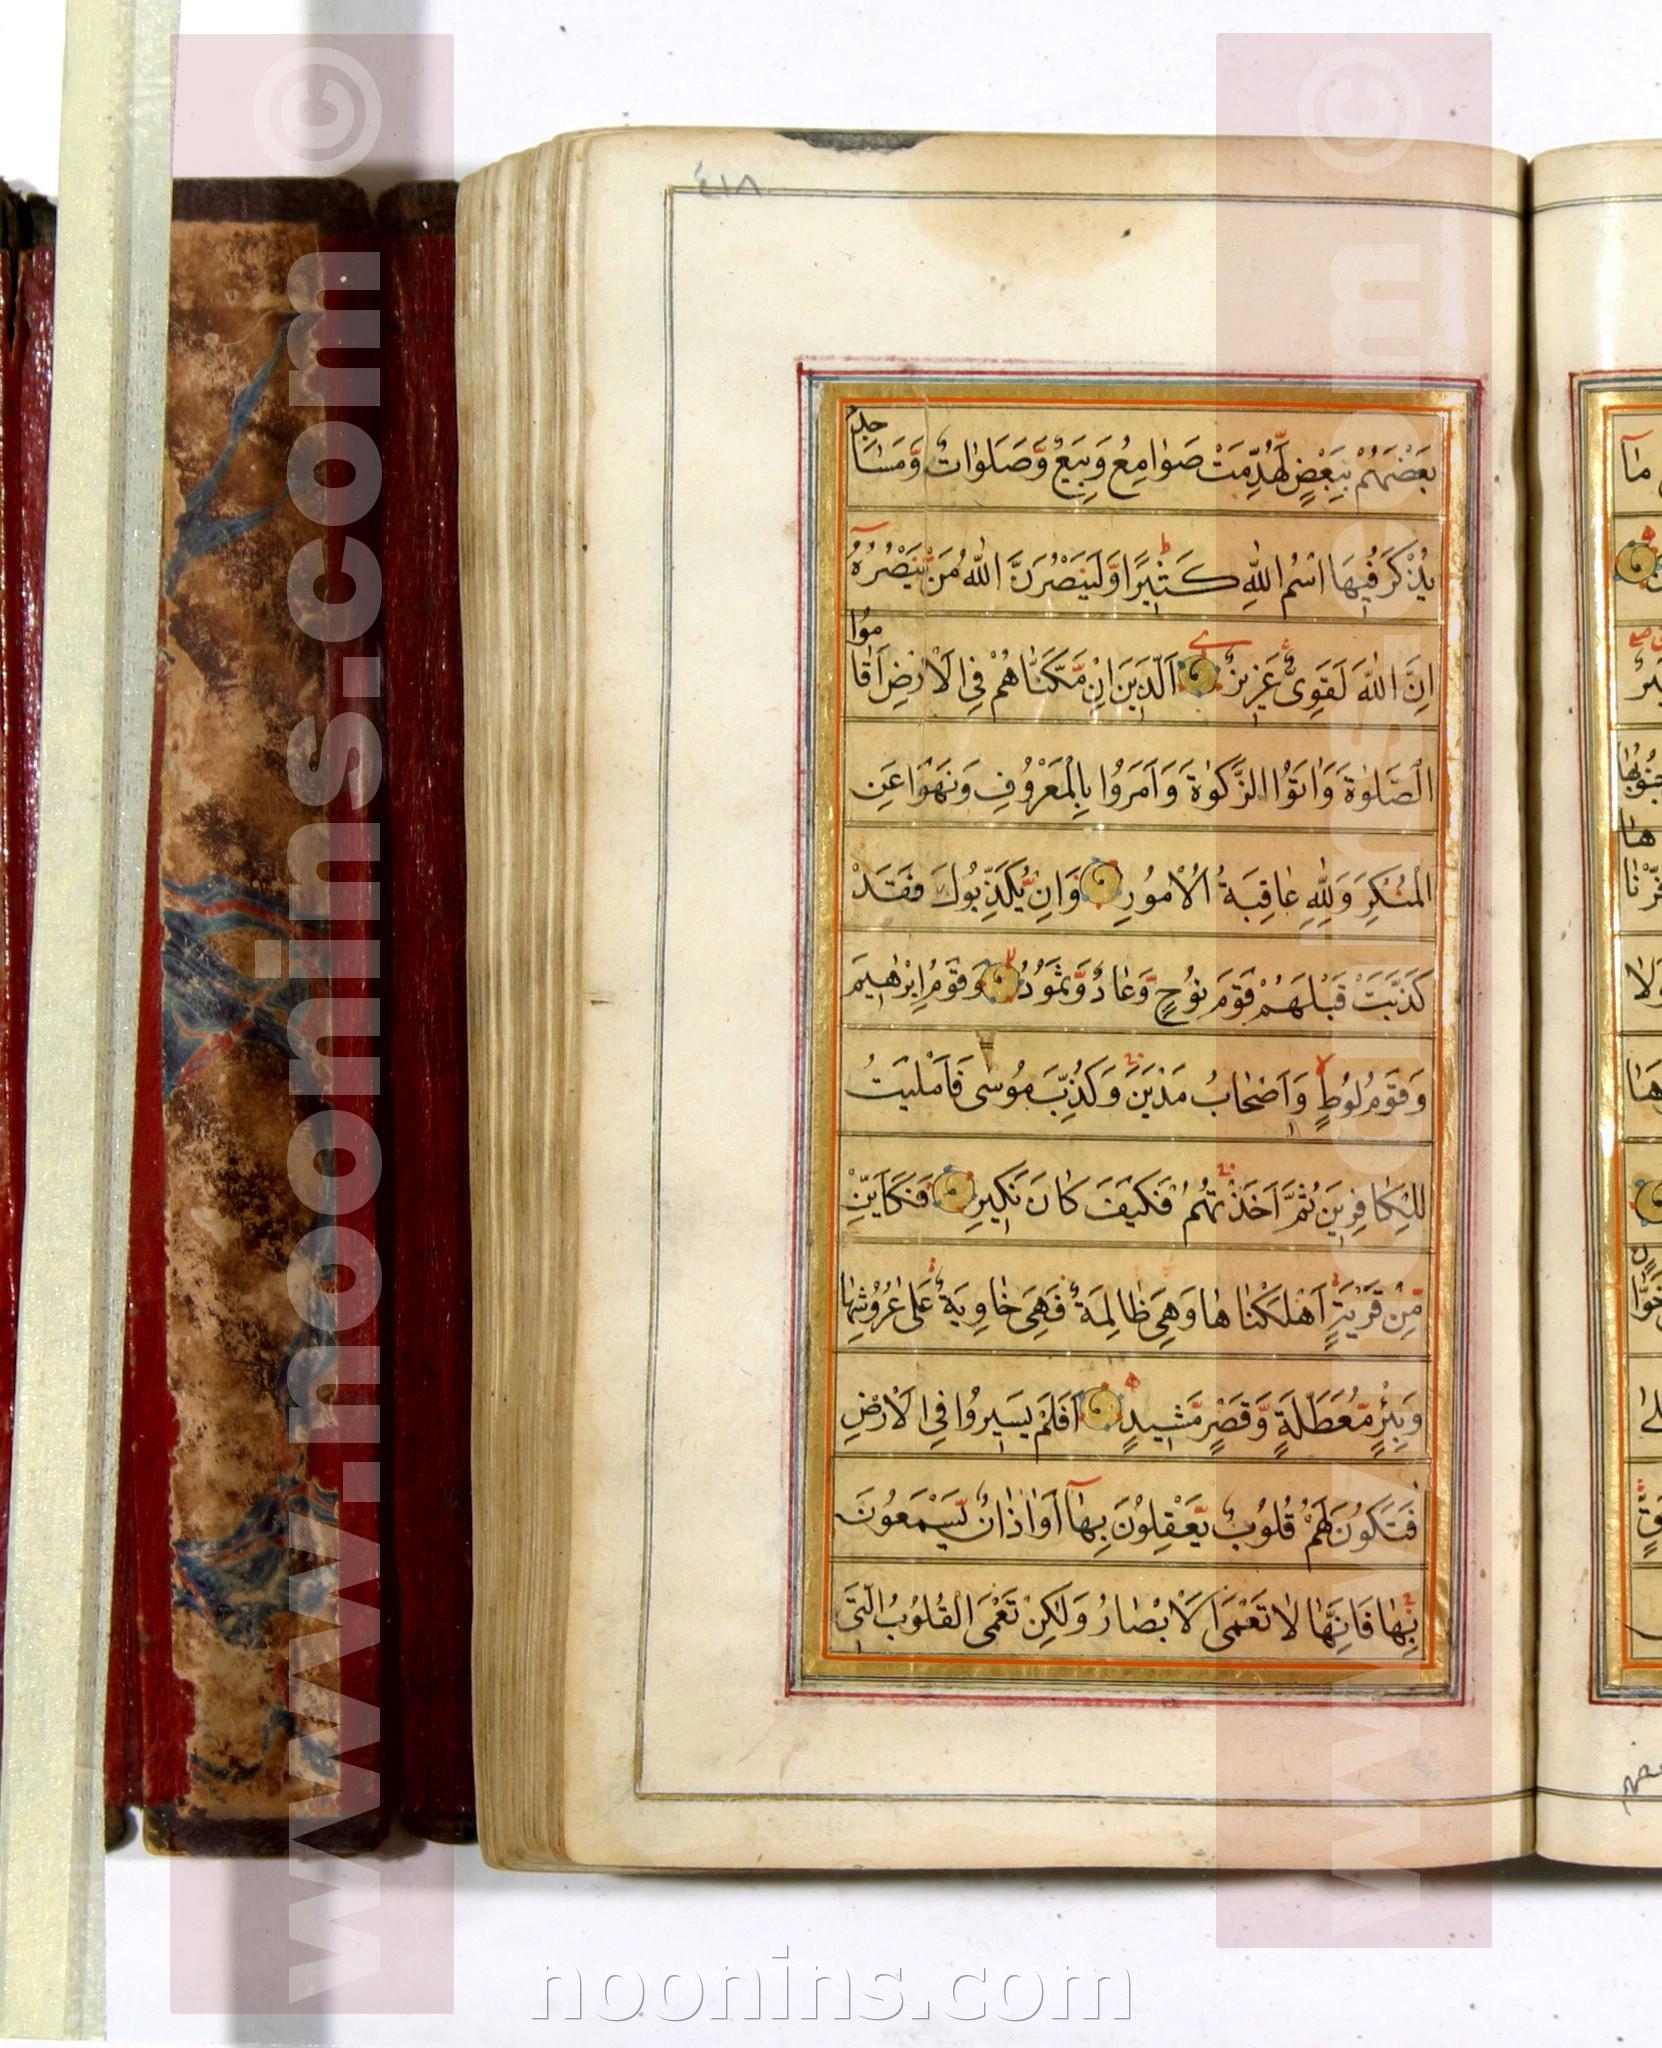 ٤١٨
بَعْضَهُمْ بِبَعْضٍ لَّهُدِّمَتْ صَوَامِعُ وَبِيَعٌ وَّصَلَوَاتٌ وَّمَسَاجِدُ
يُذْكَرُ فِيهَا اسْمُ اللّٰهِ كَثِيرًا وَّلَيَنْصُرَنَّ اللّٰهُ مَنْ يَّنْصُرُهُ
اِنَّ اللّٰهَ لَقَوِىٌّ عَزِيزٌ اَلَّذِينَ اِنْ مَّكَّنَّاهُمْ فِى الْاَرْضِ اَقَامُوا
الصَّلٰوةَ وَاٰتَوُا الزَّكٰوةَ وَاَمَرُوا بِالْمَعْرُوفِ وَنَهَوْا عَنِ
الْمُنْكَرِ وَلِلّٰهِ عَاقِبَةُ الْاُمُورِ وَاِنْ يُّكَذِّبُوكَ فَقَدْ
كَذَّبَتْ قَبْلَهُمْ قَوْمُ نُوحٍ وَّعَادٌ وَّثَمُودُ وَقَوْمُ اِبْرٰهِيمَ
وَقَوْمُ لُوطٍ وَاَصْحَابُ مَدْيَنَ وَكُذِّبَ مُوسٰى فَاَمْلَيْتُ
لِلْكَافِرِينَ ثُمَّ اَخَذْتُهُمْ فَكَيْفَ كَانَ نَكِيرِ فَكَاَيِّنْ
مِّنْ قَرْيَةٍ اَهْلَكْنَاهَا وَهِىَ ظَالِمَةٌ فَهِىَ خَاوِيَةٌ عَلٰى عُرُوشِهَا
وَبِئْرٍ مُّعَطَّلَةٍ وَّقَصْرٍ مَّشِيدٍ اَفَلَمْ يَسِيرُوا فِى الْاَرْضِ
فَتَكُونَ لَهُمْ قُلُوبٌ يَّعْقِلُونَ بِهَا اَوْ اٰذَانٌ يَّسْمَعُونَ
بِهَا فَاِنَّهَا لَا تَعْمَى الْاَبْصَارُ وَلٰكِنْ تَعْمَى الْقُلُوبُ الَّتِى
www.noonins.com ©
www.noonins.com ©
noonins.com